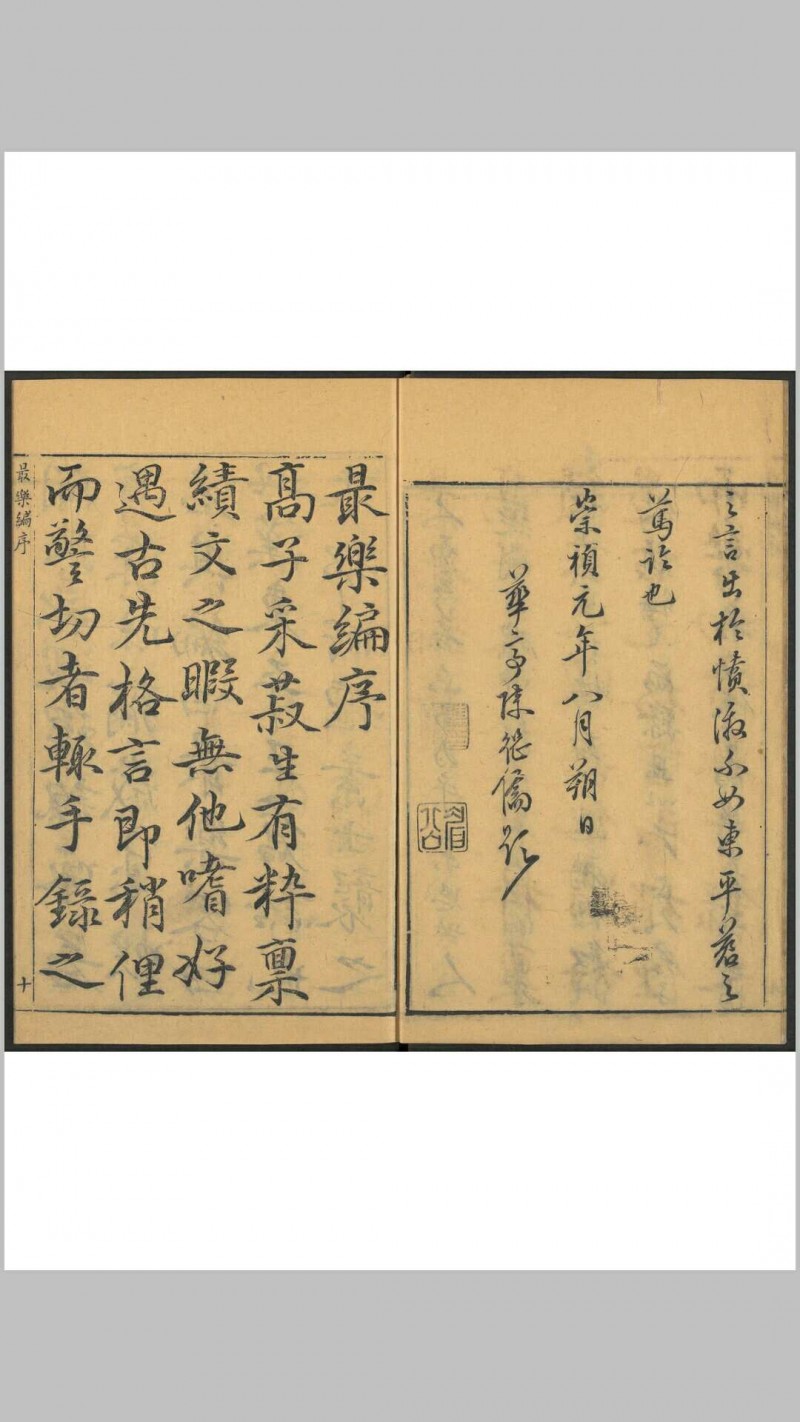 之言出於憤激不如東平蒼之
篤論也
崇禎元年八月朔日
華亭陳繼儒題
最樂編序
高子采菽生有粋稟
績文之暇無他嗜好
遇古先格言即稍俚
而警切者輙手錄之
最樂編序
十